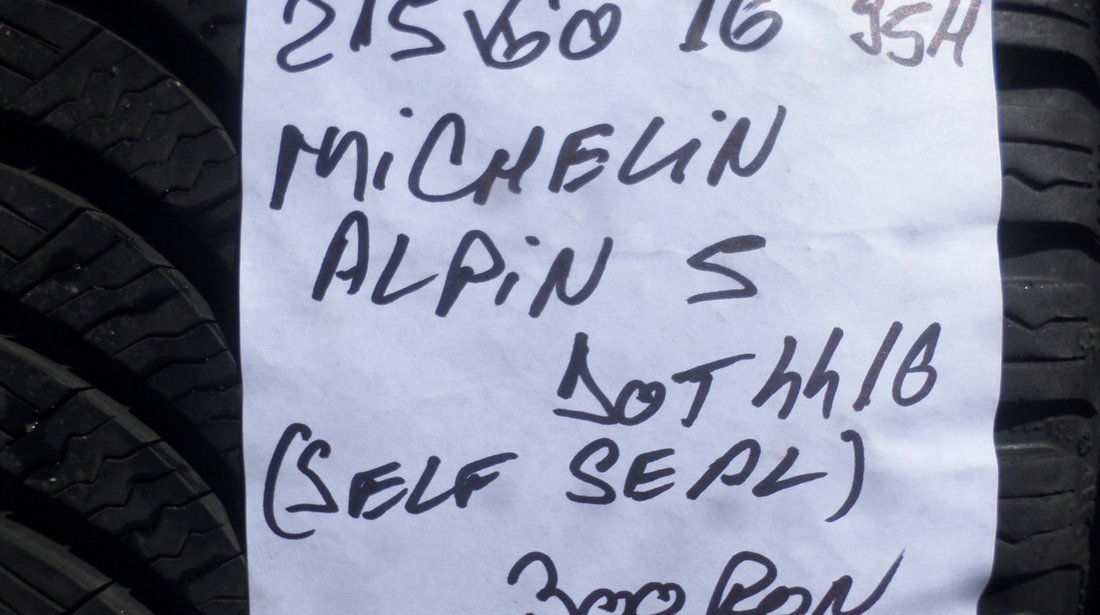 215/60 16 95H
MiCHELiN
ALPiN 5
DOT 4418
(SELF SEAL)
300 RON